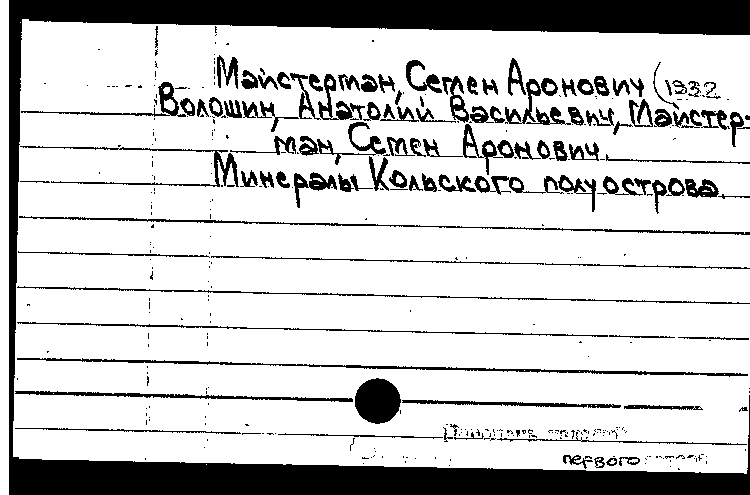 Майстерман, Семен Аронович (1932
Волошин, Анатолий Васильевич, Майстер-
ман, Семен Аронович.
Минералы Кольского полуострова.
первого